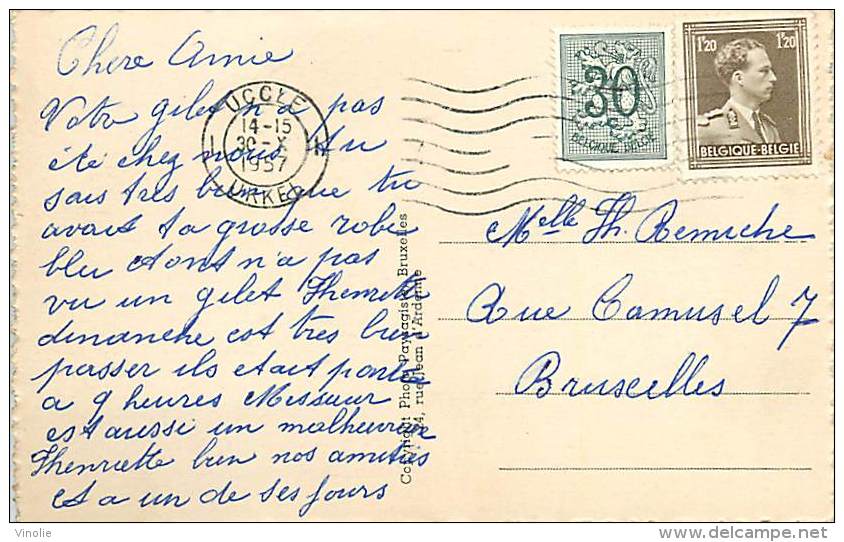 Chere Amie
Votre gilet n'a pas
été chez nous tu
sais tres bien que tu
avait ta grosse robe
bleu et ont n'a pas
vu un gilet Thenriette
dimanche est tres bien
passer ils etait partie
a 9 heures Messieur
est aussi un malheureux
Thenriette bien nos amities
et a un de ses jours
UCCLE
1 14-15 1
30-X
1957
UKKEL
30
BELGIQUE BELGIE
1F20 1F20
BELGIQUE-BELGIE
Melle Th. Remiche
Rue Camusel 7
Bruxcelles
Copyright Photo Paysagiste Bruxelles
rue Jean d'Ardenne
Vinolie
delcampe.net